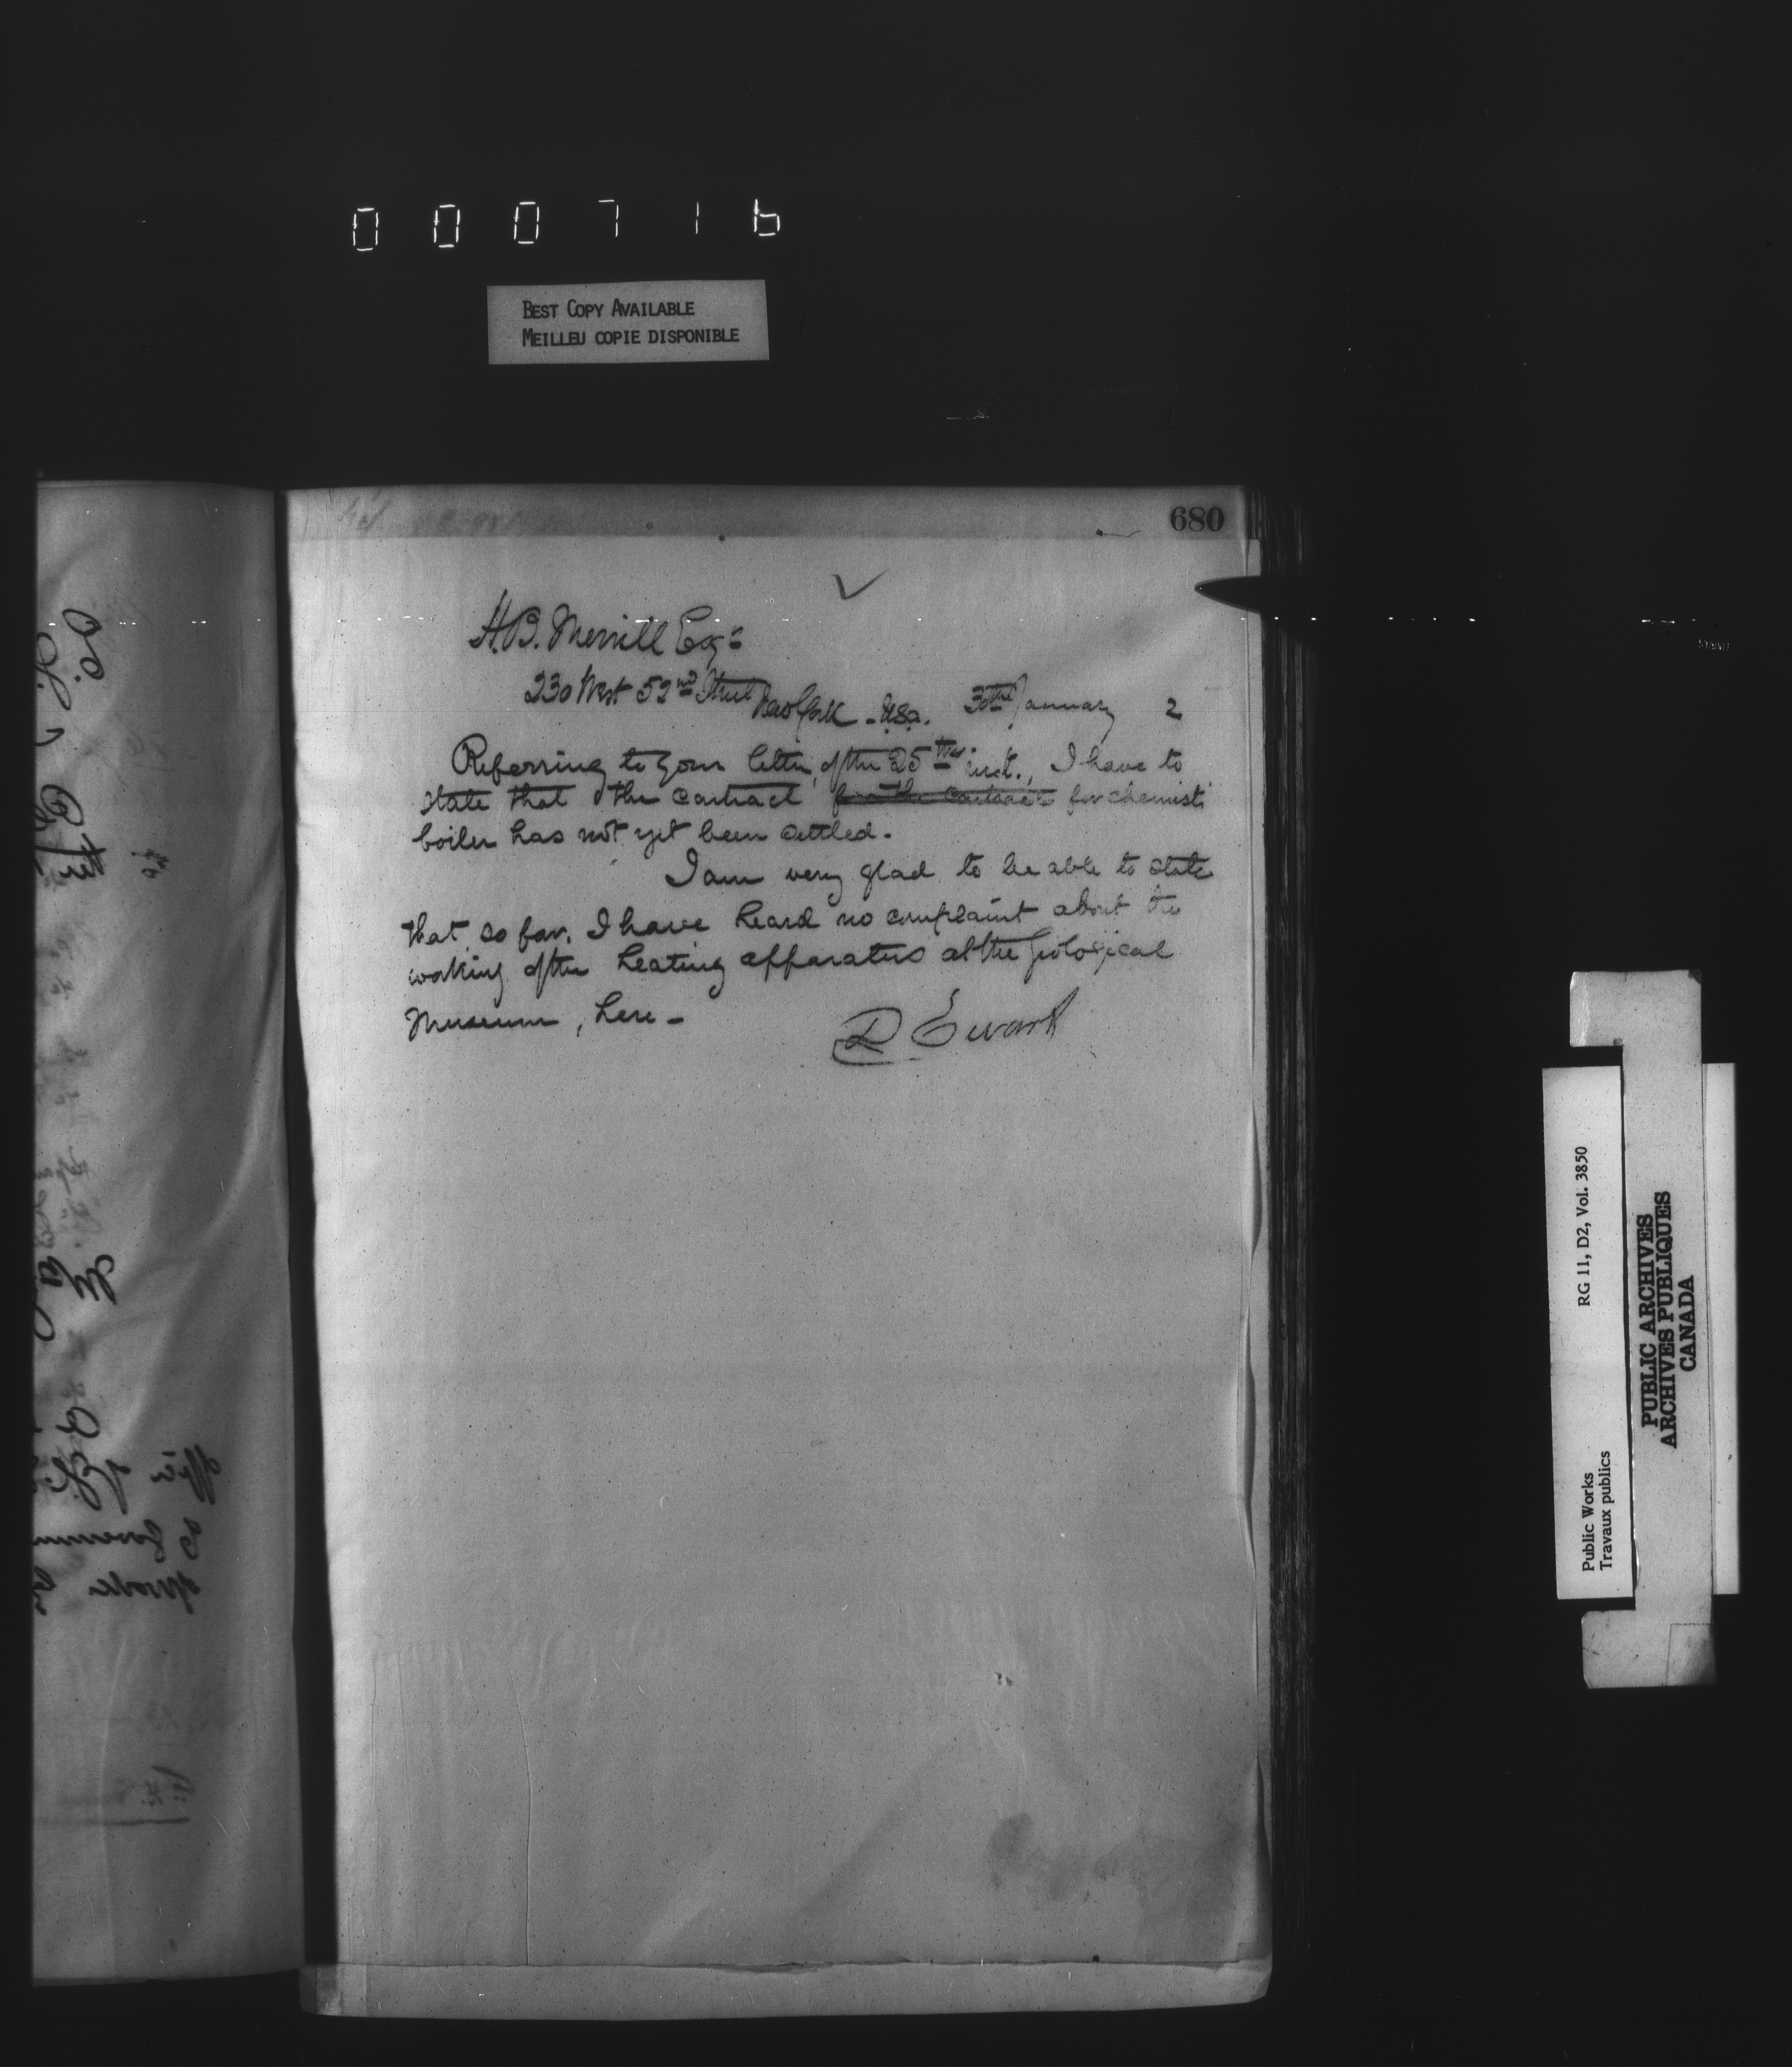 000716
BEST COPY AVAILABLE
MEILLEU COPIE DISPONIBLE
680
H.B. Merrill Esqr
230 West 52nd Street New York - U.S.a. 30th January 2
Referring to your letter, of the 25th inst., I have to
state that the contract for the contract for chemists
boiler has not yet been settled.
I am very glad to be able to state
that, so far, I have heard no complaint about the
working of the heating apparatus at the Geological
Museum, here -
D Ewart
RG 11, D2, Vol. 3850
Public Works
Travaux publics
PUBLIC ARCHIVES
ARCHIVES PUBLIQUES
CANADA